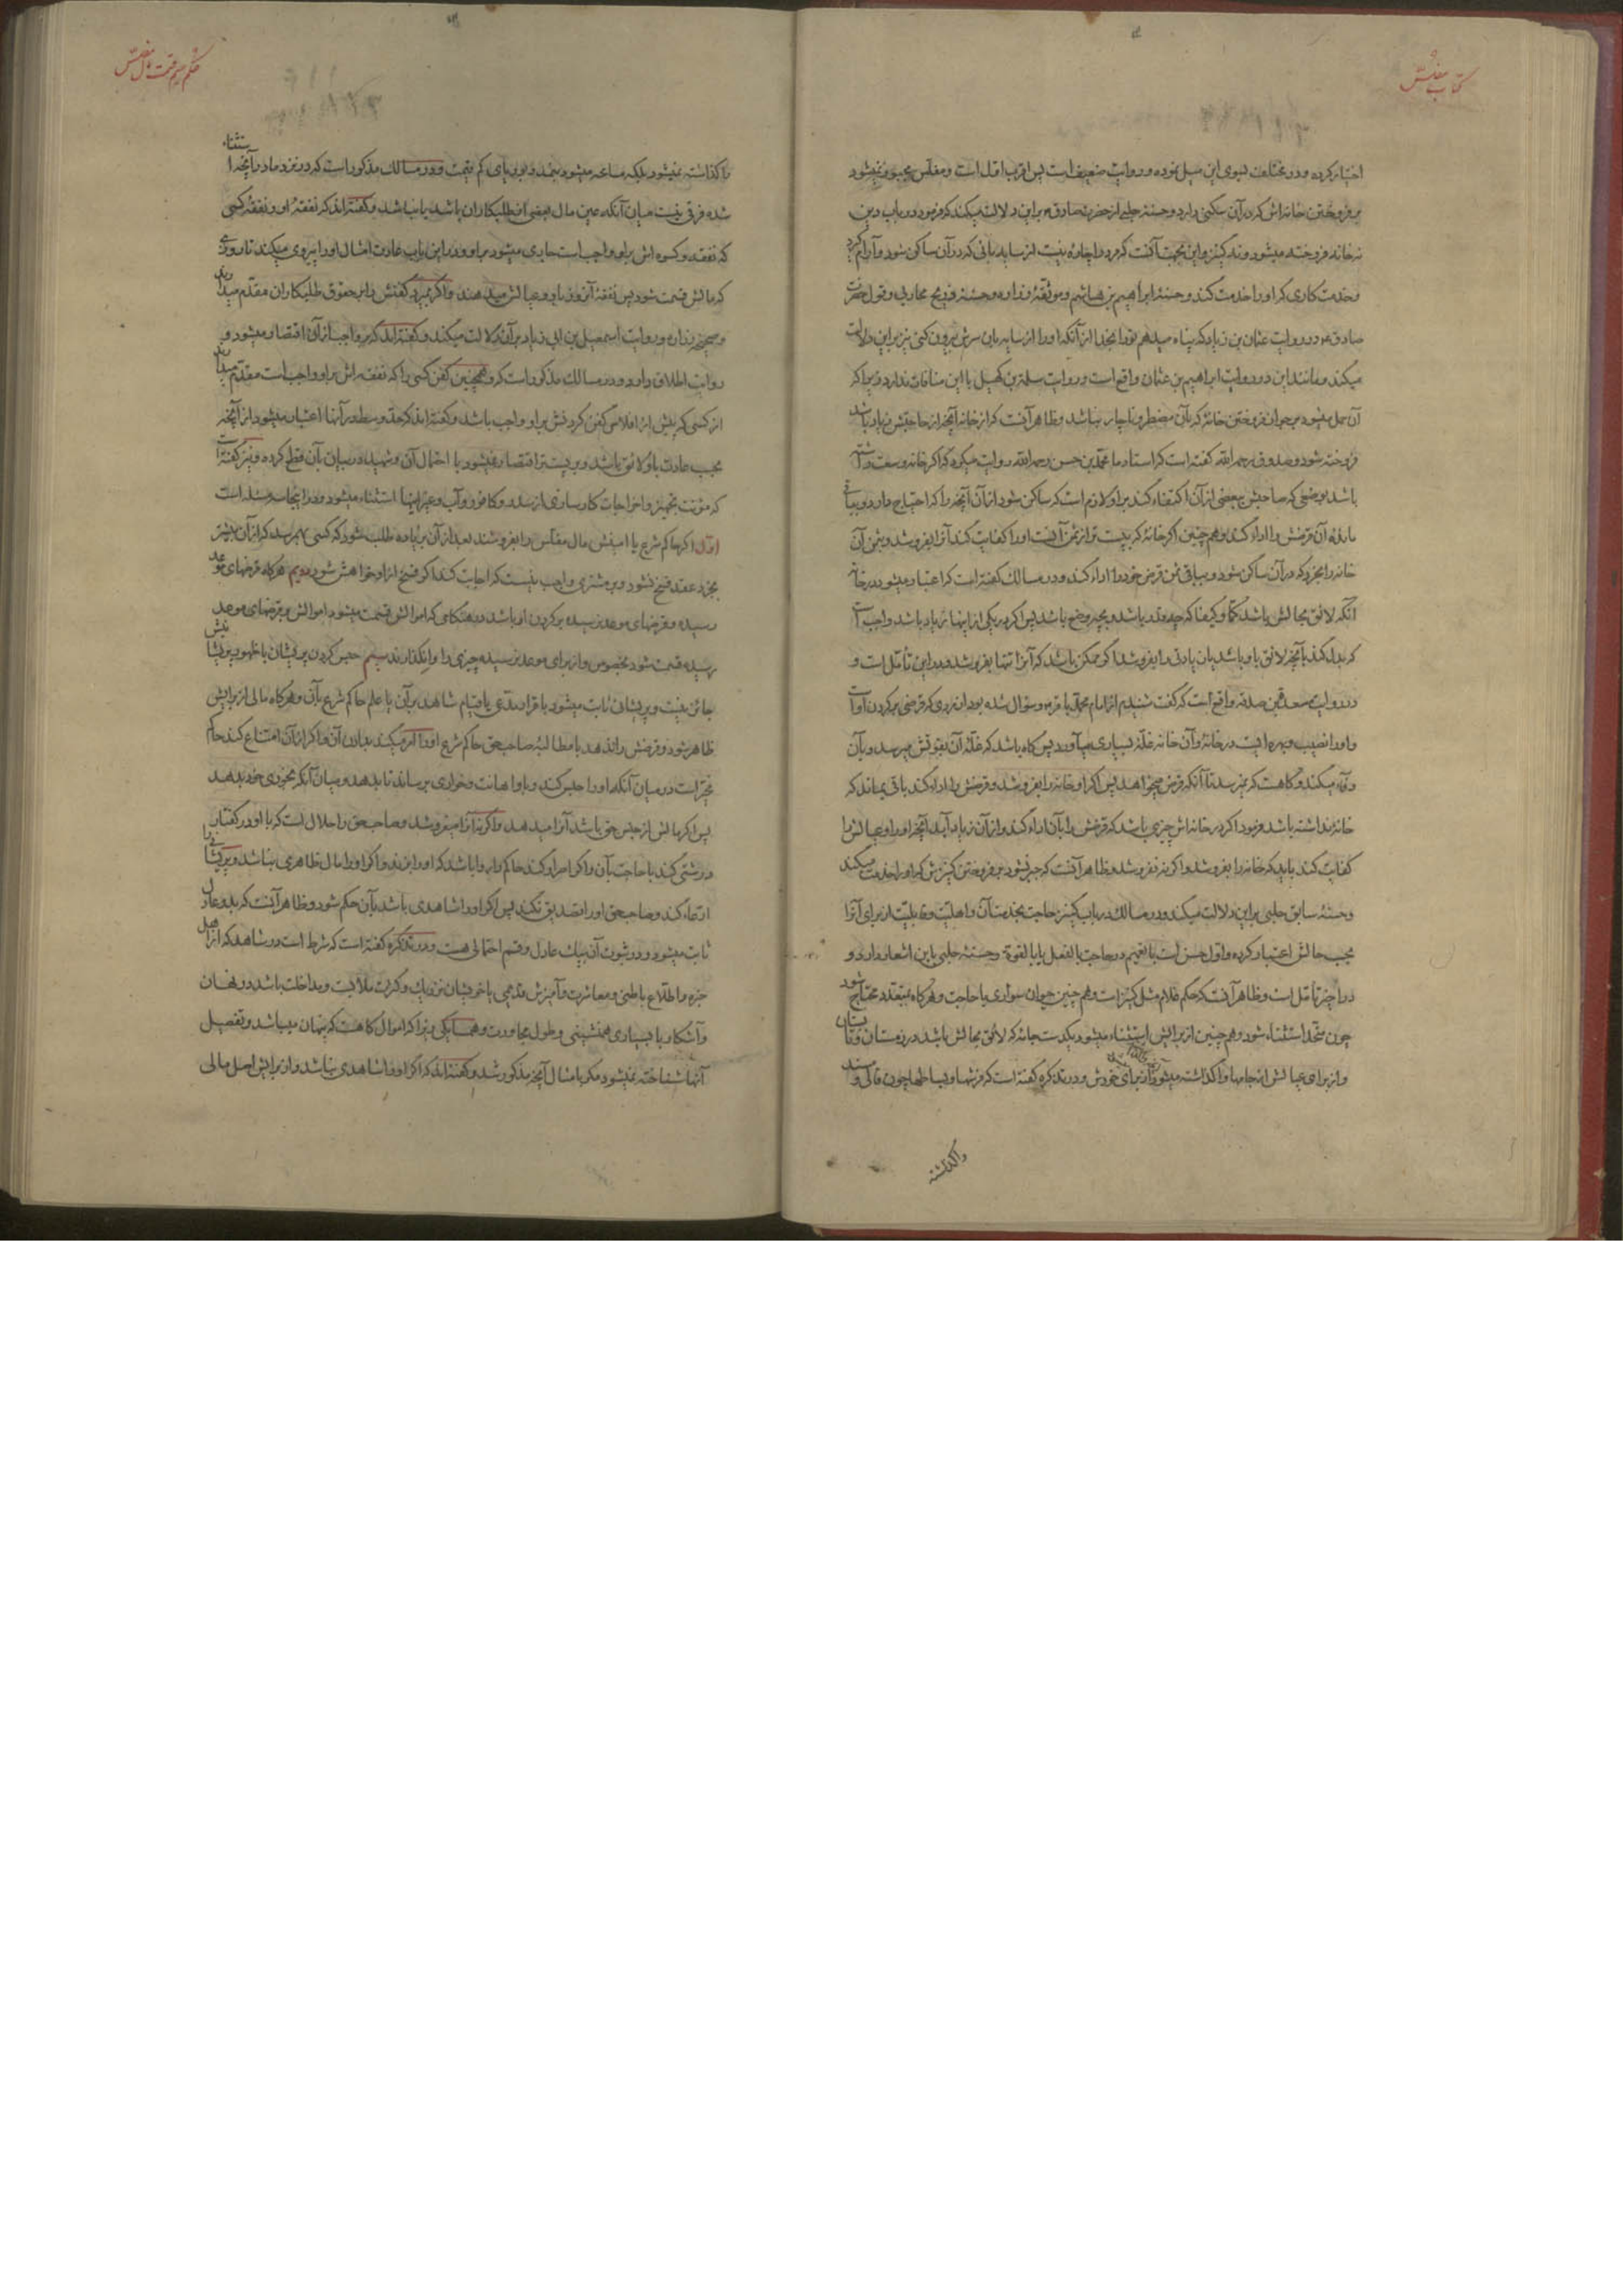 کتاب مفلس
اختیار کرده و در مختلف بسوی این میل نموده و روایت ضعیف است پس اقرب اول است و مفلس مجبور نمیشود
بر فروختن خانه اش که در آن سکنی دارد و حسنهٔ حلبی از حضرت صادق ع بر این دلالت میکند که فرمود در باب دین
نه خانه فروخته میشود و نه کنیز و این بجهت آنست که مرد را چاره نیست از سایه بانی که در آن ساکن شود و آرام گیرد
و خدمت کاری که او را خدمت کند و حسنهٔ ابراهیم بن هاشم و موثقهٔ زراره و حسنهٔ ذریح محاربی و قول حضرت
صادق ع در روایت عثمان بن زیاد که پناه میدهم تو را بخدا از آنکه او را از سایه بان سرش بیرون کنی نیز بر این دلالت
میکند و مانند این در روایت ابراهیم بن عثمان واقع است و روایت سلمة بن کهیل با این منافات ندارد زیرا که
آن حمل میشود بر جواز فروختن خانهٔ که بآن مضطر و ناچار نباشد و ظاهر آنست که از خانه آنچه از حاجتش زیاد باشد
فروخته شود و صدوق رحمه الله گفته است که استاد ما محمد بن حسن رحمه الله روایت میکرد که اگر خانه وسعت داشته
باشد بوضعی که صاحبش ببعضی از آن اکتفاء کند بر او لازم است که ساکن شود از آن آنچه را که احتیاج دارد و بباقی
ماندهٔ آن قرضش را اداء کند و هم چنین اگر خانهٔ که پست تر از ثمن آنست او را کفایت کند آنرا بفروشد و بثمن آن
خانه را بخرد که در آن ساکن شود و بباقی ثمن قرض خود را اداء کند و در مسالک گفته است که اعتبار میشود در خانه
آنکه لایق بحالش باشد کمّا و کیفا که چه قدر باشد و بچه وضع باشد پس اگر در یکی از اینها زیاد باشد واجب است
که بدل کند بآنچه لایق باو باشد یا زیادتی را بفروشد اگر ممکن باشد که آنرا تنها بفروشد و در این تأمل است و
در روایت مسعدة بن صدقه واقع است که گفت شنیدم از امام محمد باقر ع و سؤال شده بود از مردی که قرضی بر گردن او است
و او را نصیب و بهره ایست در خانهٔ و آن خانه غلّهٔ بسیاری میآورد پس گاه باشد که غلّهٔ آن بقوتش میرسد و بآن
میکند و گاهست که نمیرسد تا آنکه قرض میخواهد پس اگر او خانه را بفروشد و قرضش را اداء کند باقی میماند که
خانه نداشته باشد فرمود اگر در خانه اش چیزی باشد که قرضش را بآن اداء کند و از آن زیاد آید آنچه او را و عیالش را
کفایت کند باید که خانه را بفروشد و اگر نه نفروشد و ظاهر آنست که جبر نشود بر فروختن کنیزش که او را خدمت میکند
و حسنهٔ سابق حلبی بر این دلالت میکند و در مسالک در باب کنیز حاجت بخدمت آن و اهلیت و قابلیت از برای آنرا
بحسب حالش اعتبار کرده و اول حسن است با تعمیم در حاجت بالفعل یا بالقوة و حسنهٔ حلبی باین اشعار دارد و
در اخیر تأمل است و ظاهر آنست که حکم غلام مثل کنیز است و هم چنین حیوان سواری با حاجت و هرگاه بمتعدد محتاج شود
چون متحد استثناء شود و هم چنین از برایش استثناء میشود یکدست جامه که لایق بحالش باشد در زمستان و تابستان
و از برای عیالش از جامها واگذاشته میشود و در تذکره گفته است که فرشها و بساطها چون قالی و مسند
واگذاشته
حکم قسمت مال مفلس
واگذاشته نمیشود بلکه مسامحه میشود بنمد و بوریای کم قیمت و در مسالک مذکور است که در نزد ما در آنچه استثناء
شده فرقی نیست میان آنکه عین مال بعضی از طلبکاران باشد یا نباشد و گفته اند که نفقهٔ او و نفقهٔ کسی
که نفقه و کسوه اش بر او واجب است جاری میشود بر او و در این باب عادت امثال او را پیروی میکنند تا روزی
که مالش قسمت شود پس نفقهٔ آن روز باو و عیالش میدهند و اگر بمیرد کفنش را بر حقوق طلبکاران مقدم میدارند
و صحیحهٔ زراره و روایت اسمعیل بن ابی زیاد بر آن دلالت میکند و گفته اند که بر واجب از آن اقتصار میشود و
روایت اطلاق دارد و در مسالک مذکور است که و همچنین کفن کسی را که نفقه اش بر او واجب است مقدم میدارند
از کسی که پیش از افلاس کفن کردنش بر او واجب باشد و گفته اند که حد وسط در آنها اعتبار میشود از آنچه
بحسب عادت باو لایق باشد و بر پست تر اقتصار نمیشود با احتمال آن و شهید در بیان بآن قطع کرده و نیز گفته است
که مؤنت تجهیز و اخراجات کارسازی از سدر و کافور و آب و غیر اینها استثناء میشود و در اینجا سه مسئله است
اول اگر حاکم شرع یا امینش مال مفلس را بفروشند بعد از آن بزیاده طلب شود که کسی بهم رسد که از آن بیشتر
بخرد عقد فسخ نشود و بر مشتری واجب نیست که اجابت کند اگر فسخ از او خواهش شود دویم هرگاه قرضهای موعد
رسیده و قرضهای موعد نرسیده بر گردن او باشد در هنگامی که اموالش قسمت میشود اموالش بر قرضهای موعد
رسیده قسمت شود بخصوص و از برای موعد نرسیده چیزی را وانگذارند سیم حبس کردن پریشان با ظهور پریشانیش
جائز نیست و پریشانی ثابت میشود باقرار مدّعی یا قیام شاهد بر آن یا علم حاکم شرع بآن و هرگاه مالی از برایش
ظاهر شود و قرضش را ندهد با مطالبهٔ صاحب حق حاکم شرع او را امر میکند بدادن آن و اگر از آن امتناع کند حاکم
مخیّر است در میان آنکه او را حبس کند و باو اهانت و خواری برساند تا بدهد و میان آنکه بخودی خود بدهد
پس اگر مالش از جنس حق باشد آنرا میدهد و اگر نه آنرا میفروشد و صاحب حق را حلال است که با او در گفتار
درشتی کند با حاجت بآن و اگر اصرار کند حاکم را روا باشد که او را بزند و اگر او را مال ظاهری نباشد و پریشانی را
ادّعاء کند و صاحب حق او را تصدیق نکند پس اگر او را شاهدی باشد بآن حکم شود و ظاهر آنست که بدو عادل
ثابت میشود و در ثبوت آن بیک عادل و قسم احتمالی هست و در تذکره گفته است که شرط است در شاهد که از اهل
خبره و اطّلاع باطنی و معاشرت و آمیزش قدیمی یا خویشان نزدیک و کثرت ملابست و مداخلت باشد در نهان
و آشکار با بسیاری همنشینی و طول مجاورت و همسایگی زیرا که اموال گاهست که پنهان میباشد و تفصیل
آنها شناخته نمیشود مگر بامثال آنچه مذکور شد و گفته اند که اگر او را شاهدی نباشد و از برایش اصل مالی